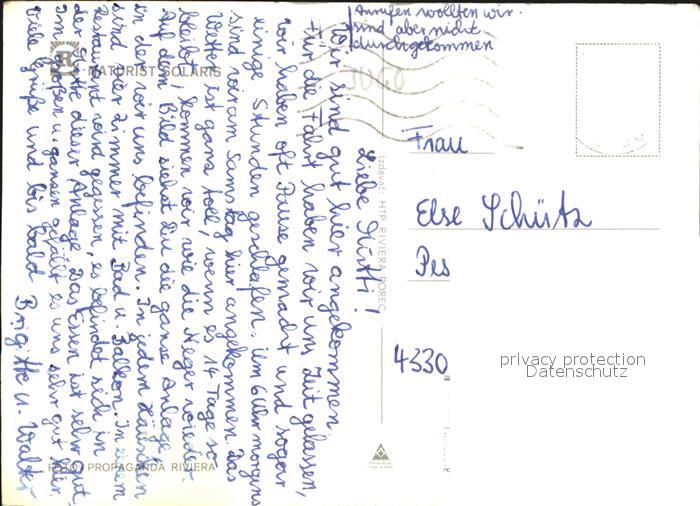 Anrufen wollten wir.
sind aber nicht
durchgekommen
Liebe Mutti!
Wir sind gut hier angekommen
Für die Fahrt haben wir uns Zeit gelassen,
wir haben oft Pause gemacht und sogar
einige Stunden geschlafen. Um 6 Uhr morgens
sind wir am Samstag hier angekommen. Das
Wetter ist ganz toll, wenn es 14 Tage so
bleibt, kommen wir wie die Neger wieder.
Auf dem Bild siehst Du die ganze Anlage,
in der wir uns befinden. In jedem Häuschen
sind vier Zimmer mit Bad u. Balkon. In einem
Restaurant wird gegessen, es befindet sich in
der Mitte dieser Anlage. Das Essen ist sehr gut.
Im großen u. ganzen gefällt es uns sehr gut hier.
Viele Grüße und bis bald
Brigitte u. Walter
NATURIST SOLARIS
FOTO: PROPAGANDA RIVIERA
Izdavač: HTP RIVIERA POREČ
JUGO
Frau
Else Schütz
4330
privacy protection
Datenschutz